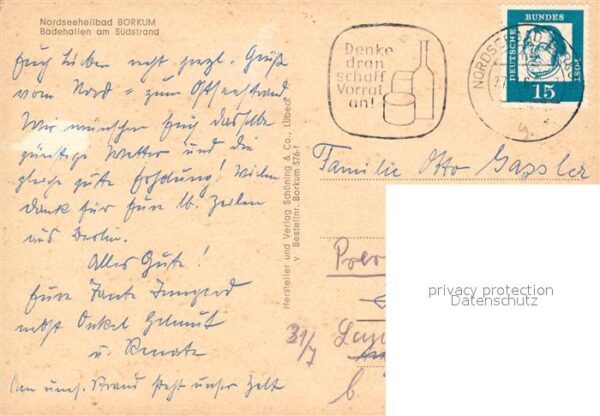 Nordseeheilbad BORKUM
Badehallen am Südstrand
Euch Lieben recht herzl. Grüße
vom Nord = zum Ostseestrand
Wir wünschen Euch dasselbe
günstige Wetter und die
gleiche gute Erholung! Vielen
Dank für Eure lb. Zeilen
aus Berlin.
Alles Gute!
Eure Tante Irmgard
nebst Onkel Helmut
u. Renate
am Strand steht unser Zelt
Hersteller und Verlag Schöning & Co., Lübeck
v Bestellnr. Borkum 376-1
Denke
dran
schaff
Vorrat
an!
NORDSEEBAD
DEUTSCHE
BUNDES
POST
15
Familie Otto Gassler
31/7
b
privacy protection
Datenschutz